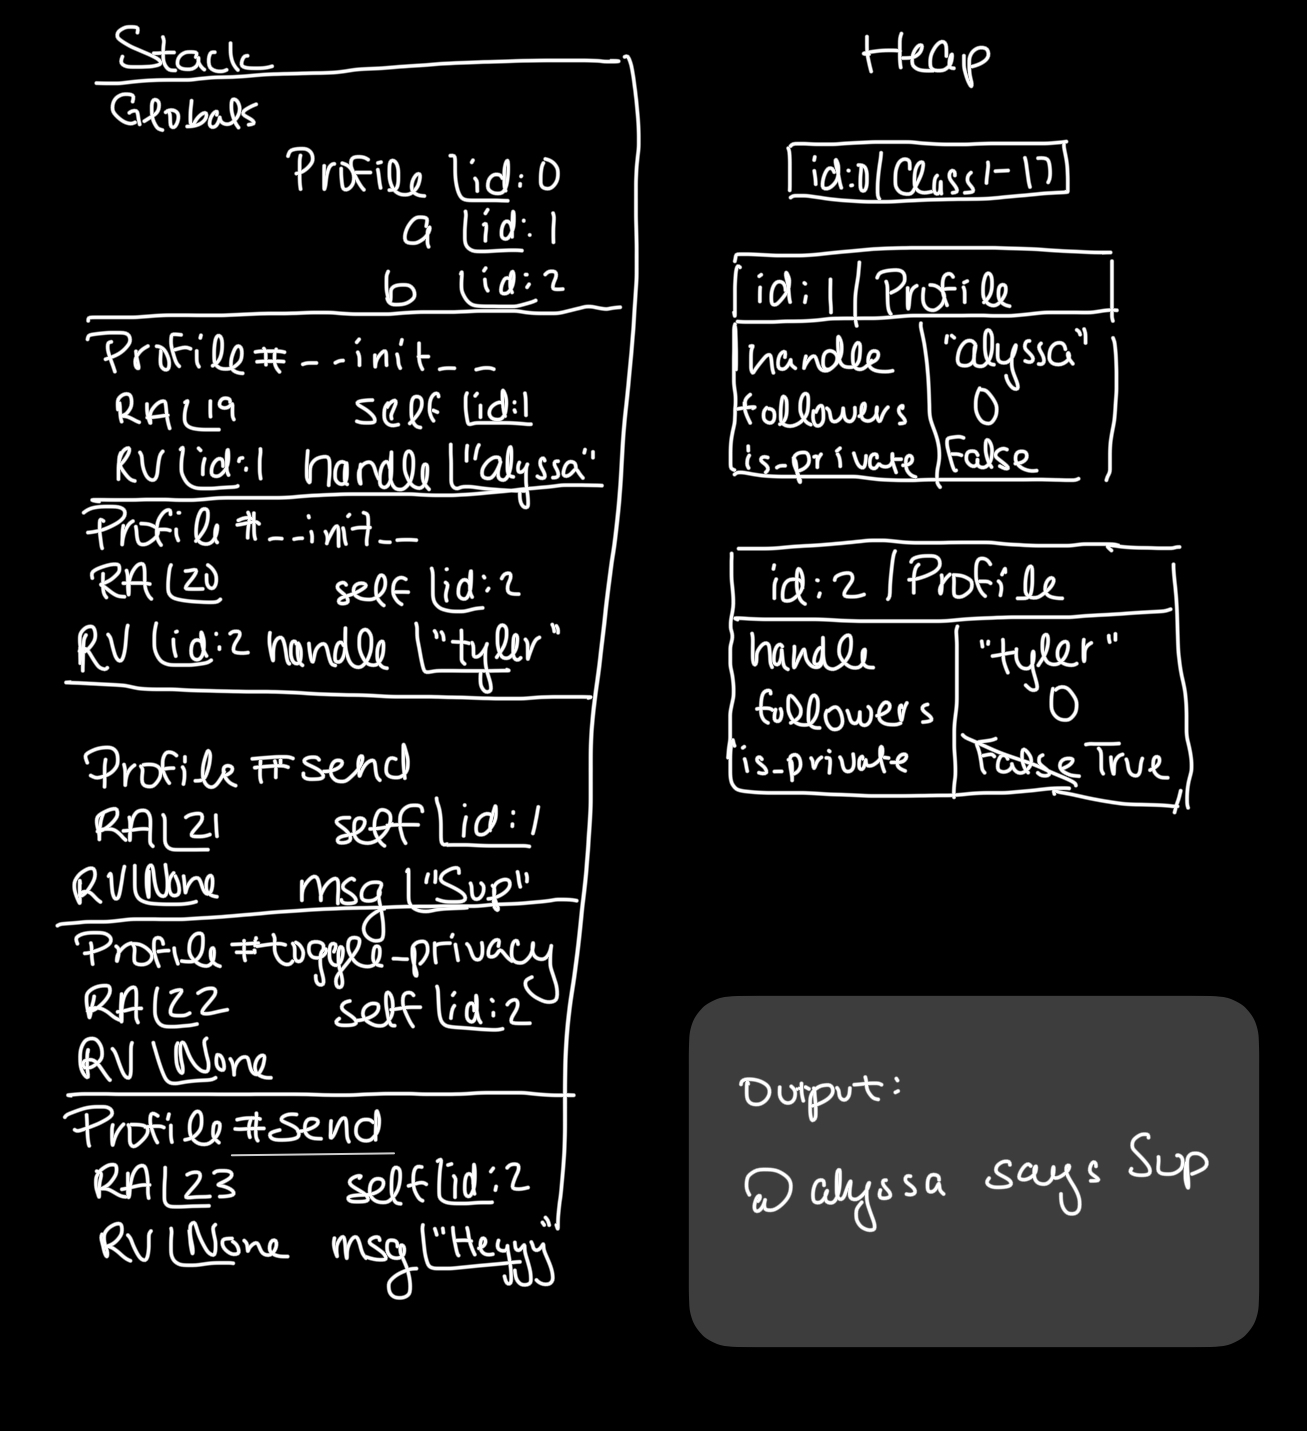 Stack
Globals
Profile id:0
a id:1
b id:2
Profile#__init__
RA 19 self id:1
RV id:1 handle "alyssa"
Profile#__init__
RA 20 self id:2
RV id:2 handle "tyler"
Profile#send
RA 21 self id:1
RV None msg "Sup"
Profile#toggle_privacy
RA 22 self id:2
RV None
Profile#send
RA 23 self id:2
RV None msg "Heyyy"
Heap
id:0|Class 1-17
id:1|Profile
handle "alyssa"
followers 0
is_private False
id:2|Profile
handle "tyler"
followers 0
is_private False True
Output:
@alyssa says Sup